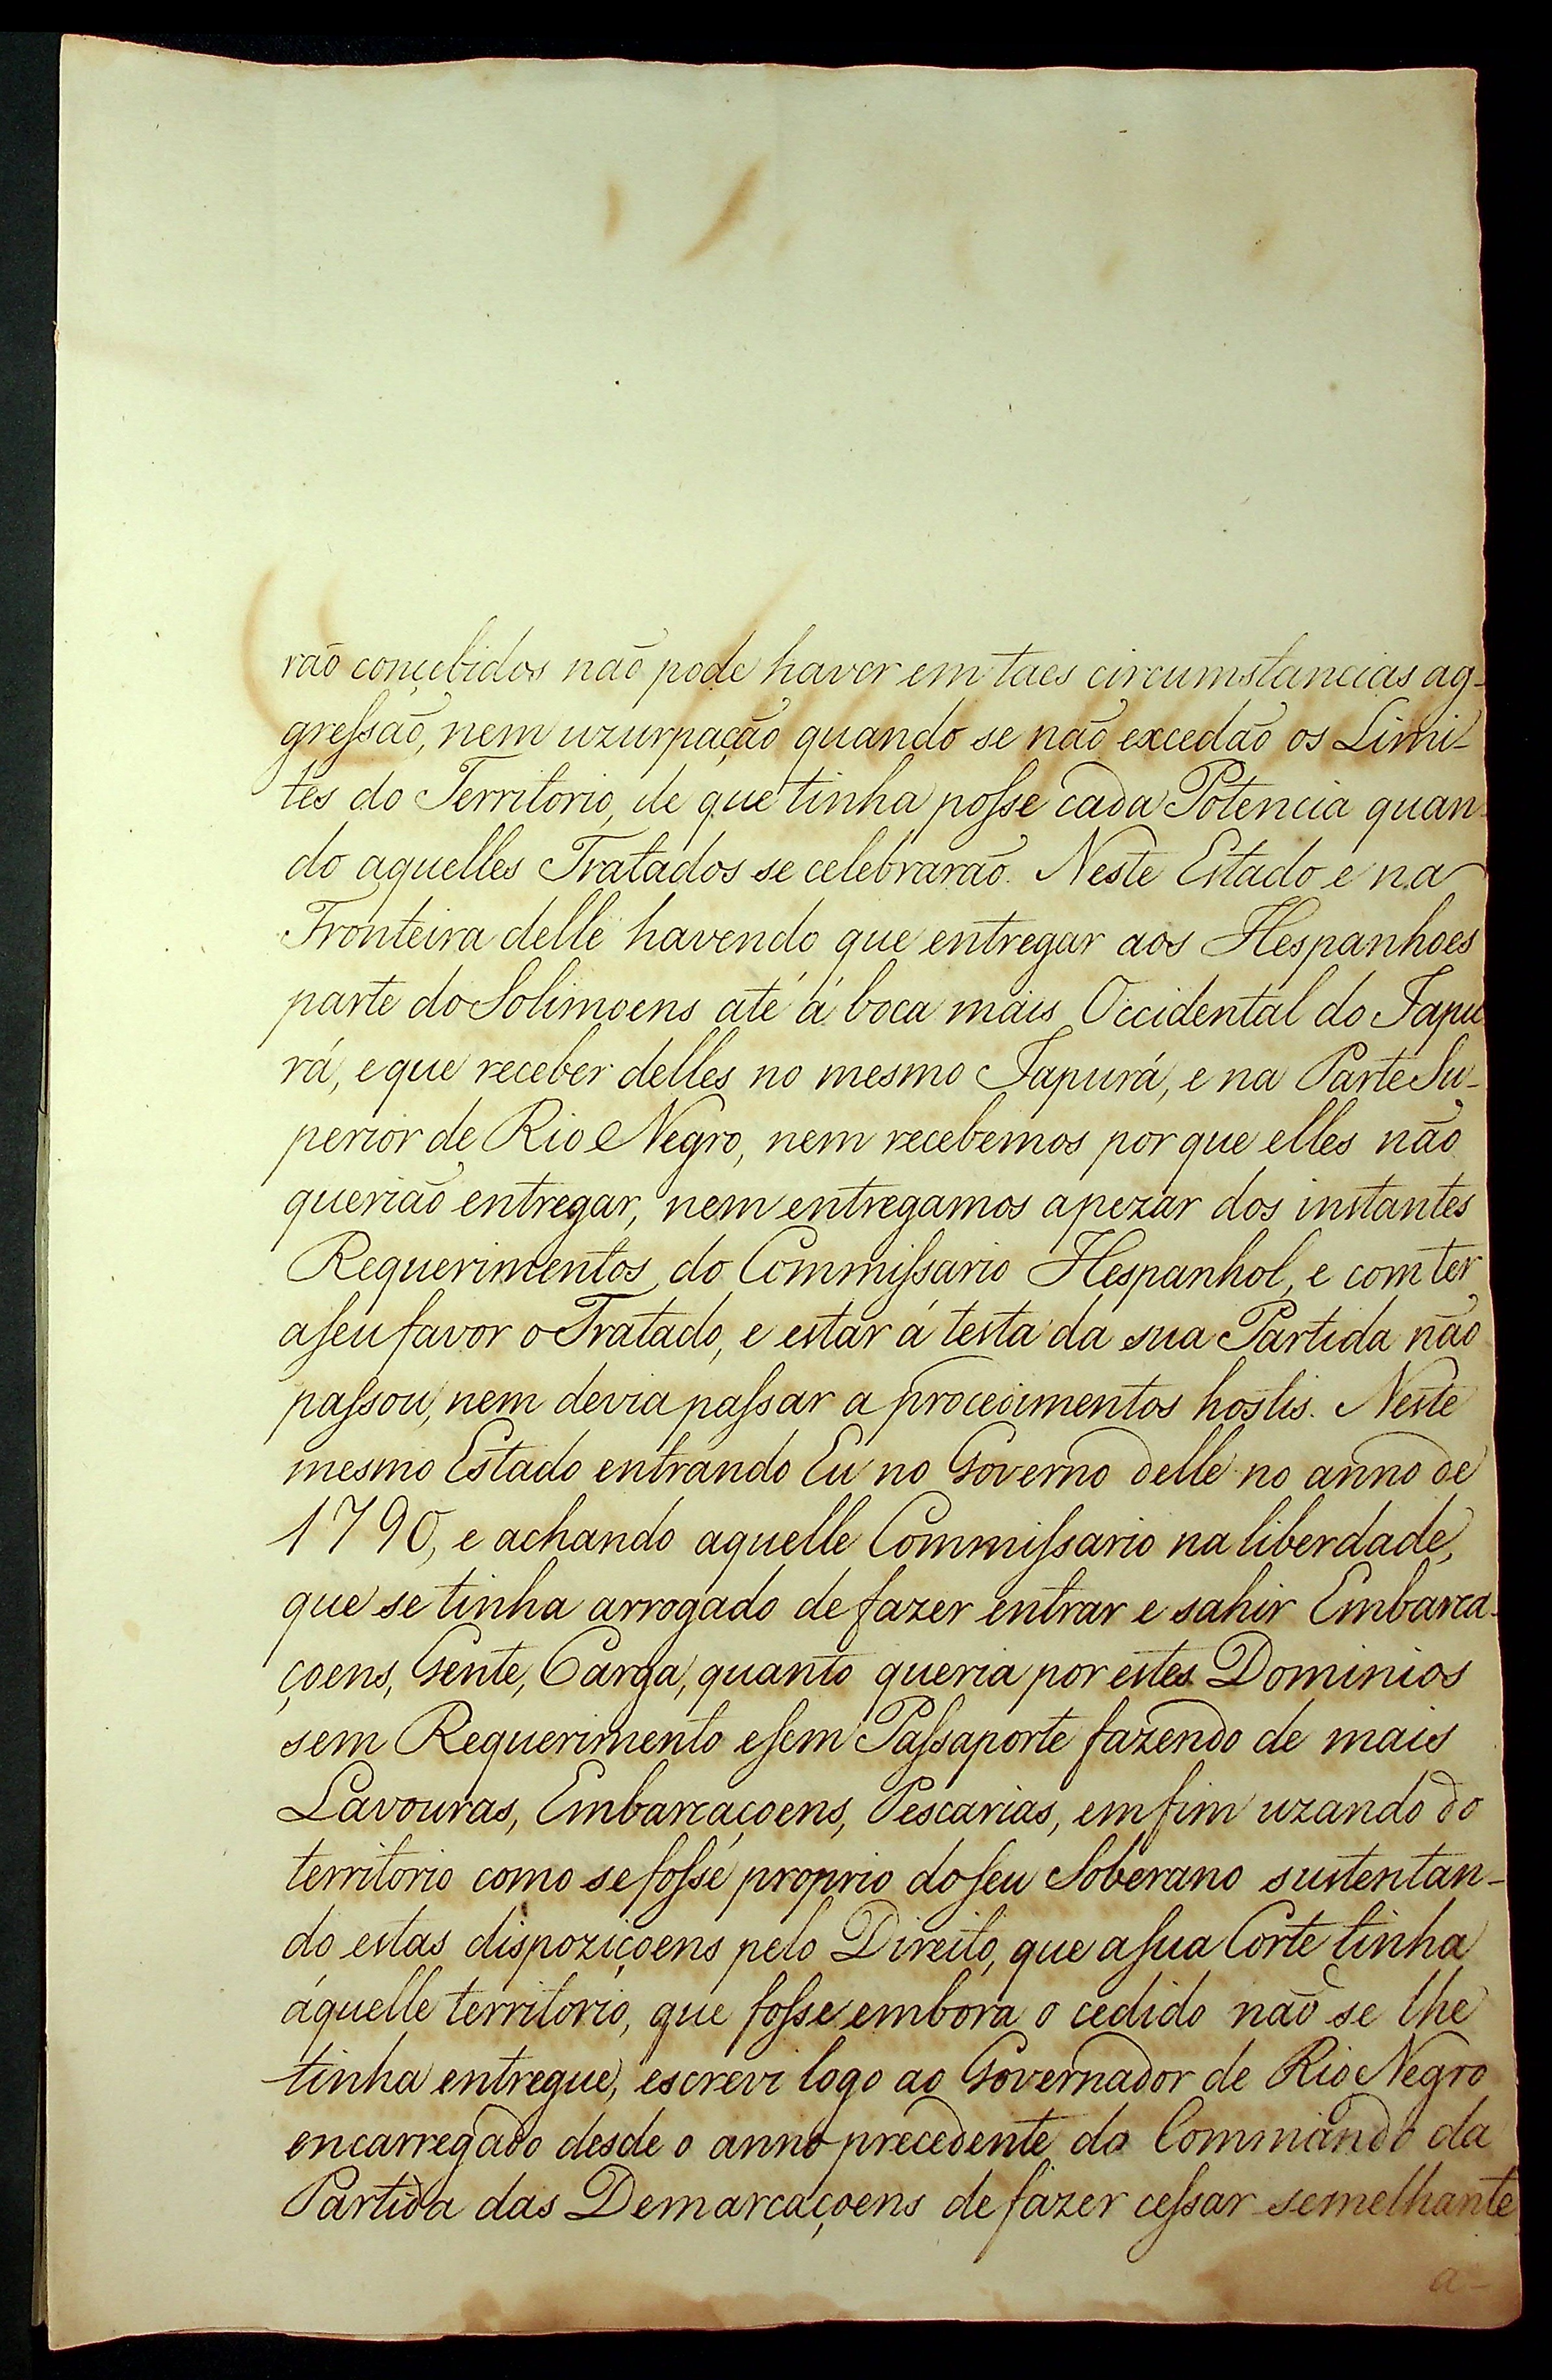 rão conçebidos não pode haver em taes circumstancias ag-
gressão, nem uzurpação quando se não excedão os Limi-
tes do Territorio, de que tinha posse cada Potencia quan-
do aquelles Tratados se celebrarão. Neste Estado e na
Fronteira delle havendo que entregar aos Hespanhoes
parte do Solimoens até á boca mais Occidental do Japu
rá, e que receber delles no mesmo Japurá, e na Parte Su-
perior de Rio Negro, nem recebemos por que elles não
querião entregar, nem entregamos apezar dos instantes
Requerimentos do Commissario Hespanhol, e com ter
a seu favor o Tratado, e estar á testa da sua Partida não
passou, nem devia passar a procedimentos hostis. Neste
mesmo Estado entrando Eu no Governo delle no anno de
1790, e achando aquelle Commissario na liberdade,
que se tinha arrogado de fazer entrar e sahir Embarca-
çoens, Gente, Carga, quanto queria por estes Dominios
sem Requerimento e sem Passaporte fazendo de mais
Lavouras, Embarcaçoens, Pescarias, em fim uzando do
territorio como se fosse proprio do seu Soberano sustentan-
do estas dispoziçoens pelo Direito, que a sua Corte tinha
áquelle territorio, que fosse embora o cedido não se lhe
tinha entregue, escrevi logo ao Governador de Rio Negro
encarregado desde o anno precedente do Commando da
Partida das Demarcaçoens de fazer cessar semelhante
a-